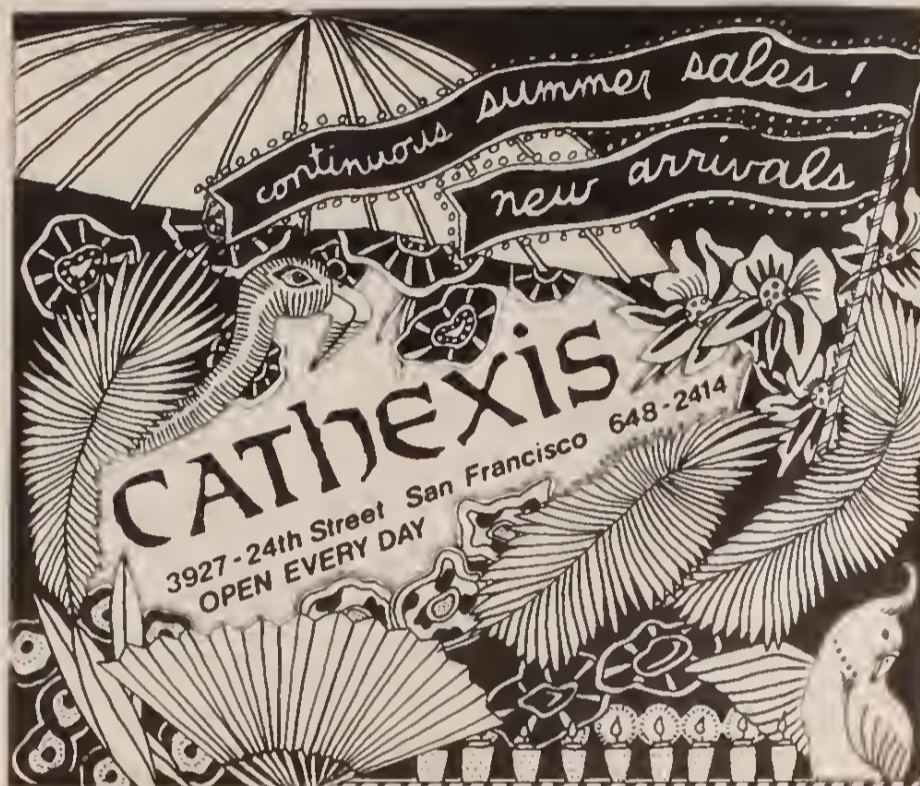 continuous summer sales!
new arrivals
CAThExis
3927-24th Street San Francisco 648-2414
OPEN EVERY DAY